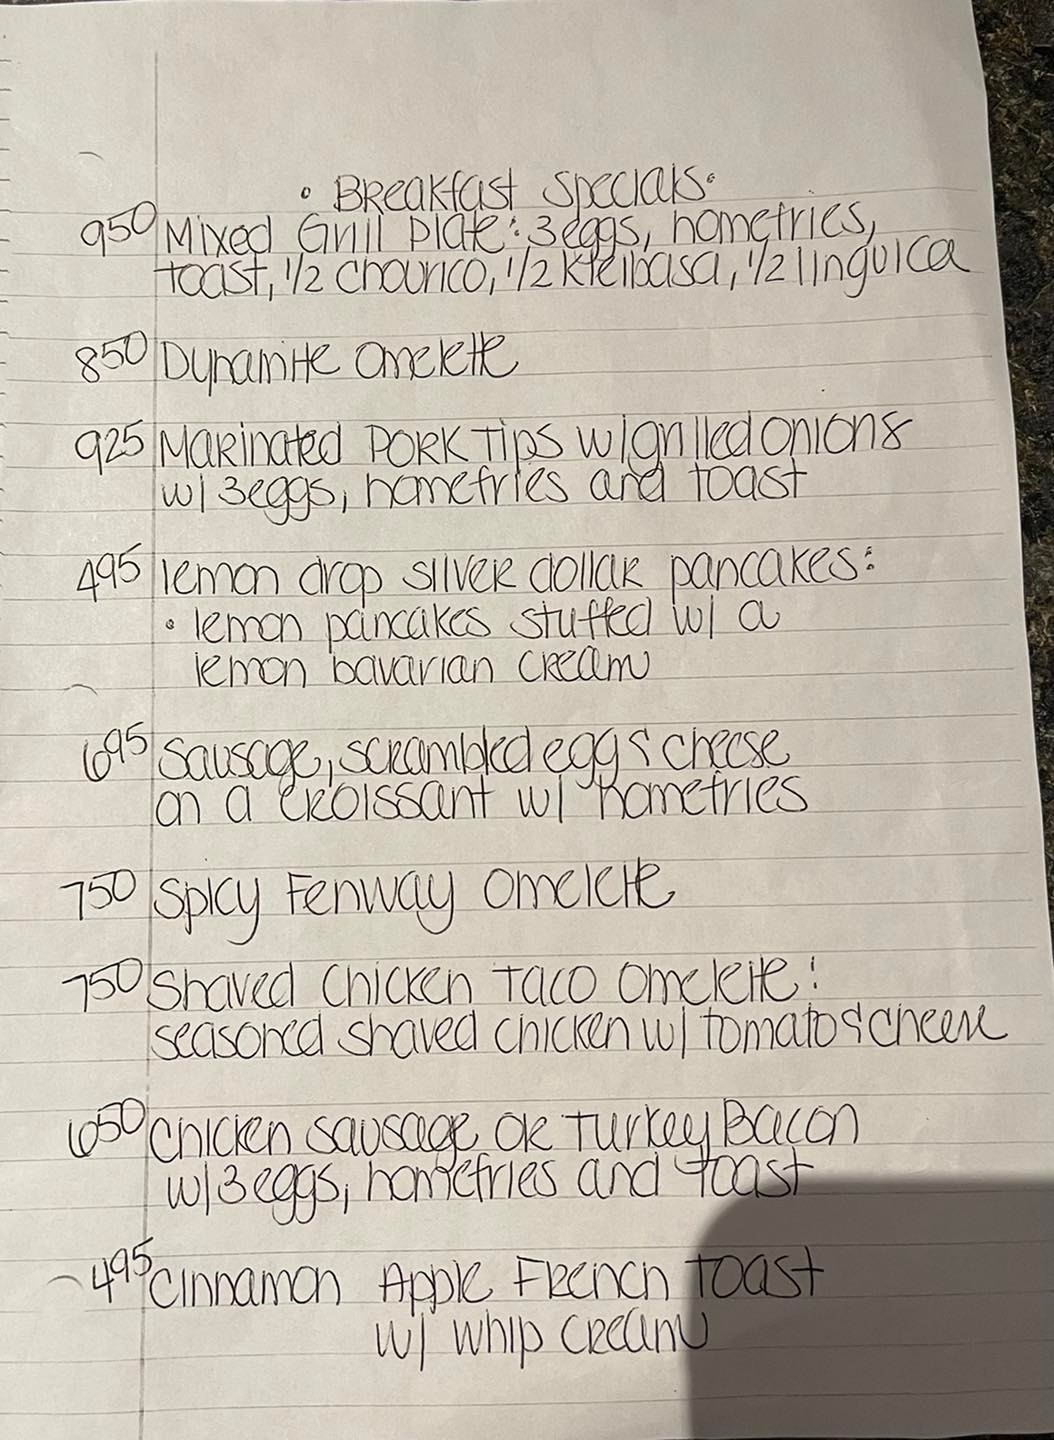 • Breakfast Specials •
950 Mixed Grill Plate: 3 eggs, homefries,
toast, 1/2 chourico, 1/2 kielbasa, 1/2 linguica
850 Dynamite Omelette
925 Marinated Pork Tips w/grilled onions
w/ 3 eggs, homefries and toast
495 lemon drop silver dollar pancakes:
• lemon pancakes stuffed w/ a
lemon bavarian cream
695 Sausage, scrambled egg & cheese
on a croissant w/ homefries
750 Spicy Fenway Omelette
750 Shaved Chicken Taco Omelette:
seasoned shaved chicken w/ tomato & cheese
650 Chicken sausage or Turkey Bacon
w/ 3 eggs, homefries and toast
495 Cinnamon Apple French Toast
w/ whip cream